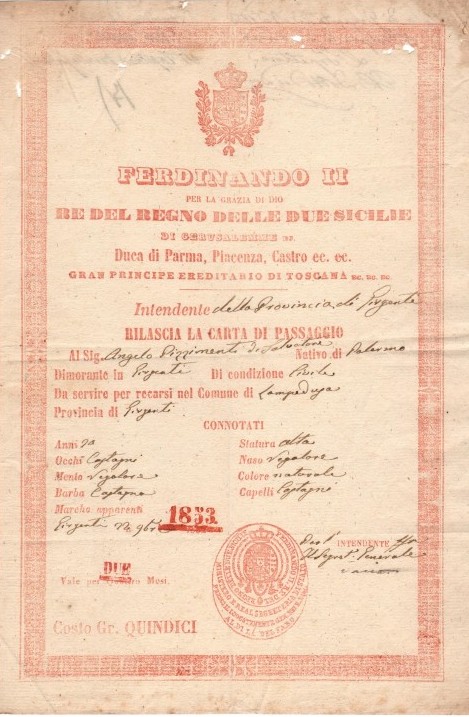 FERDINANDO II
PER LA GRAZIA DI DIO
RE DEL REGNO DELLE DUE SICILIE
DI GERUSALEMME EC.
Duca di Parma, Piacenza, Castro ec. ec.
GRAN PRINCIPE EREDITARIO DI TOSCANA EC. EC. EC.
Intendente della Provincia di Girgenti
RILASCIA LA CARTA DI PASSAGGIO
Al Sig. Angelo di Salvatore Nativo di Palermo
Dimorante in Girgenti Di condizione Civile
Da servire per recarsi nel Comune di Lampedusa
Provincia di Girgenti
CONNOTATI
Anni Statura alta
Occhi Castagni Naso Regolare
Mento Regolare Colore naturale
Barba Castagna Capelli Castagni
Marche apparenti
Girgenti 1853
INTENDENTE
Il Segret. Generale
DUE
Vale per Mesi.
Costo Gr. QUINDICI